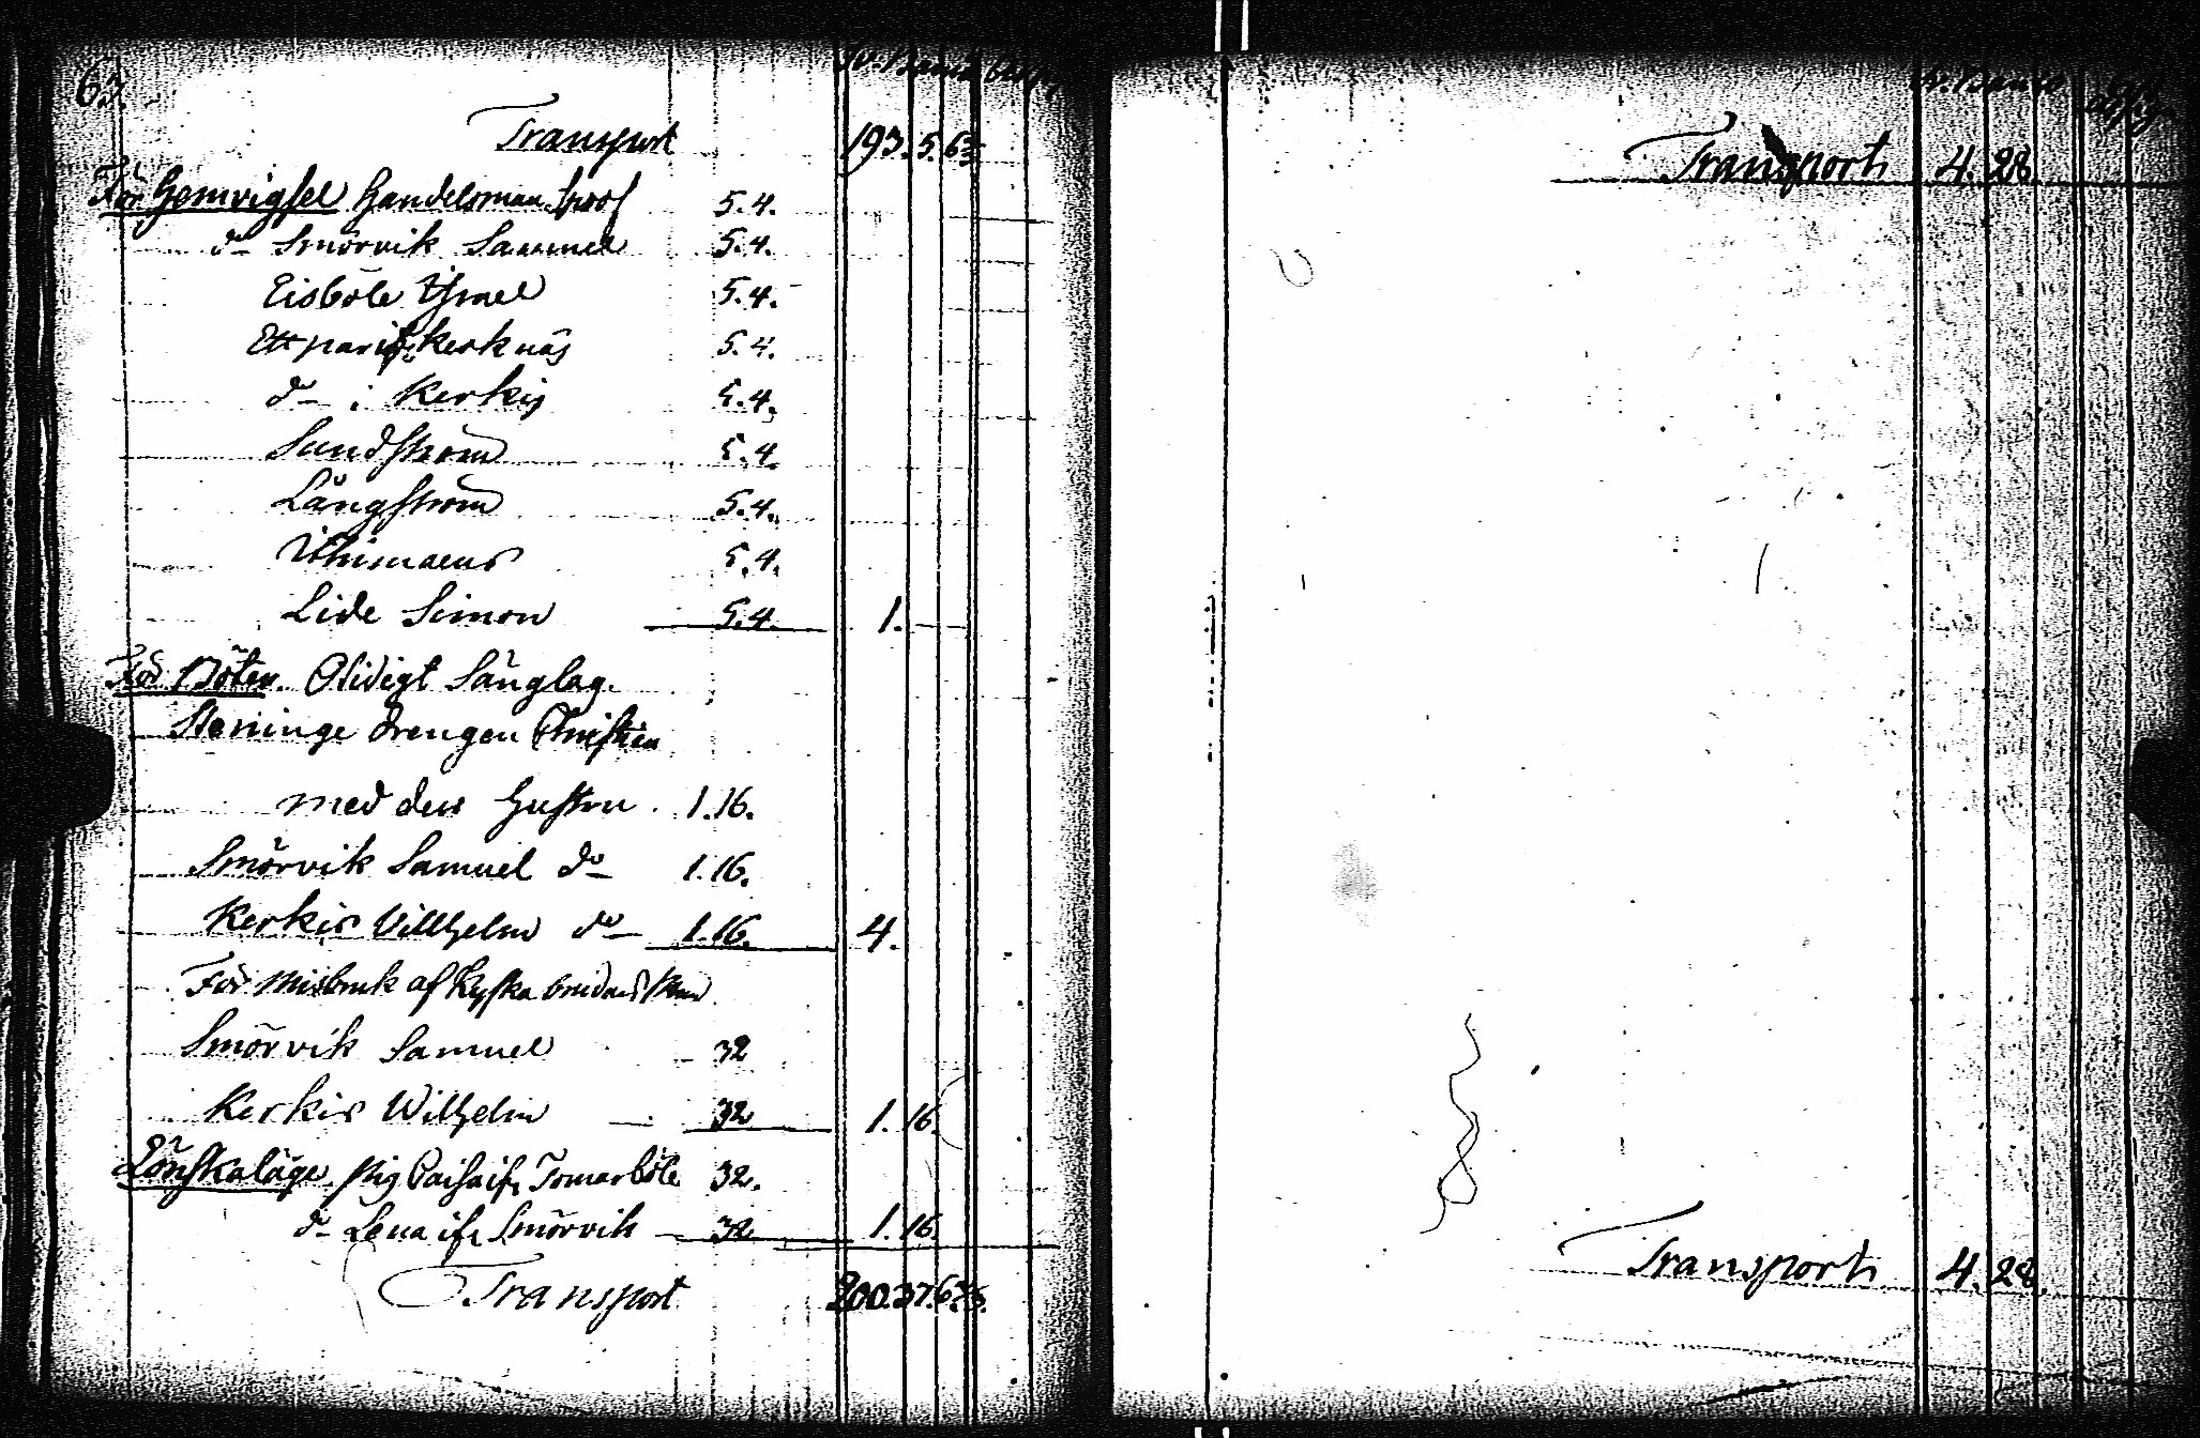 Transport 193. 5. 6
För Hemvigsel Handelsman 5. 4.
do Smörvik Samuel 5. 4.
Eisböle Israel 5. 4.
Ett par ifr. Kerknäs 5. 4.
do i Kerkis 5. 4.
Sundström 5. 4.
Långström 5. 4.
Uthimaeus 5. 4.
Lide Simon 5. 4. 1. —
För Böten. Olidigt Sänglag.
Staninge drengen Christian
med den Hustru 1. 16.
Smörvik Samuel do 1. 16.
Kerkis Villhelm do 1. 16. 4.
För Misbruk af Kyska
Smörvik Samuel 32
Kerkis Wilhelm 32 1. 16.
Lönskaläge. Pig Caisa ifr. Tomarböle 32.
do Lena ifr Smörvik 32 1. 16.
Transport 200. 37. 6
Transport 4. 28
Transport 4. 28.